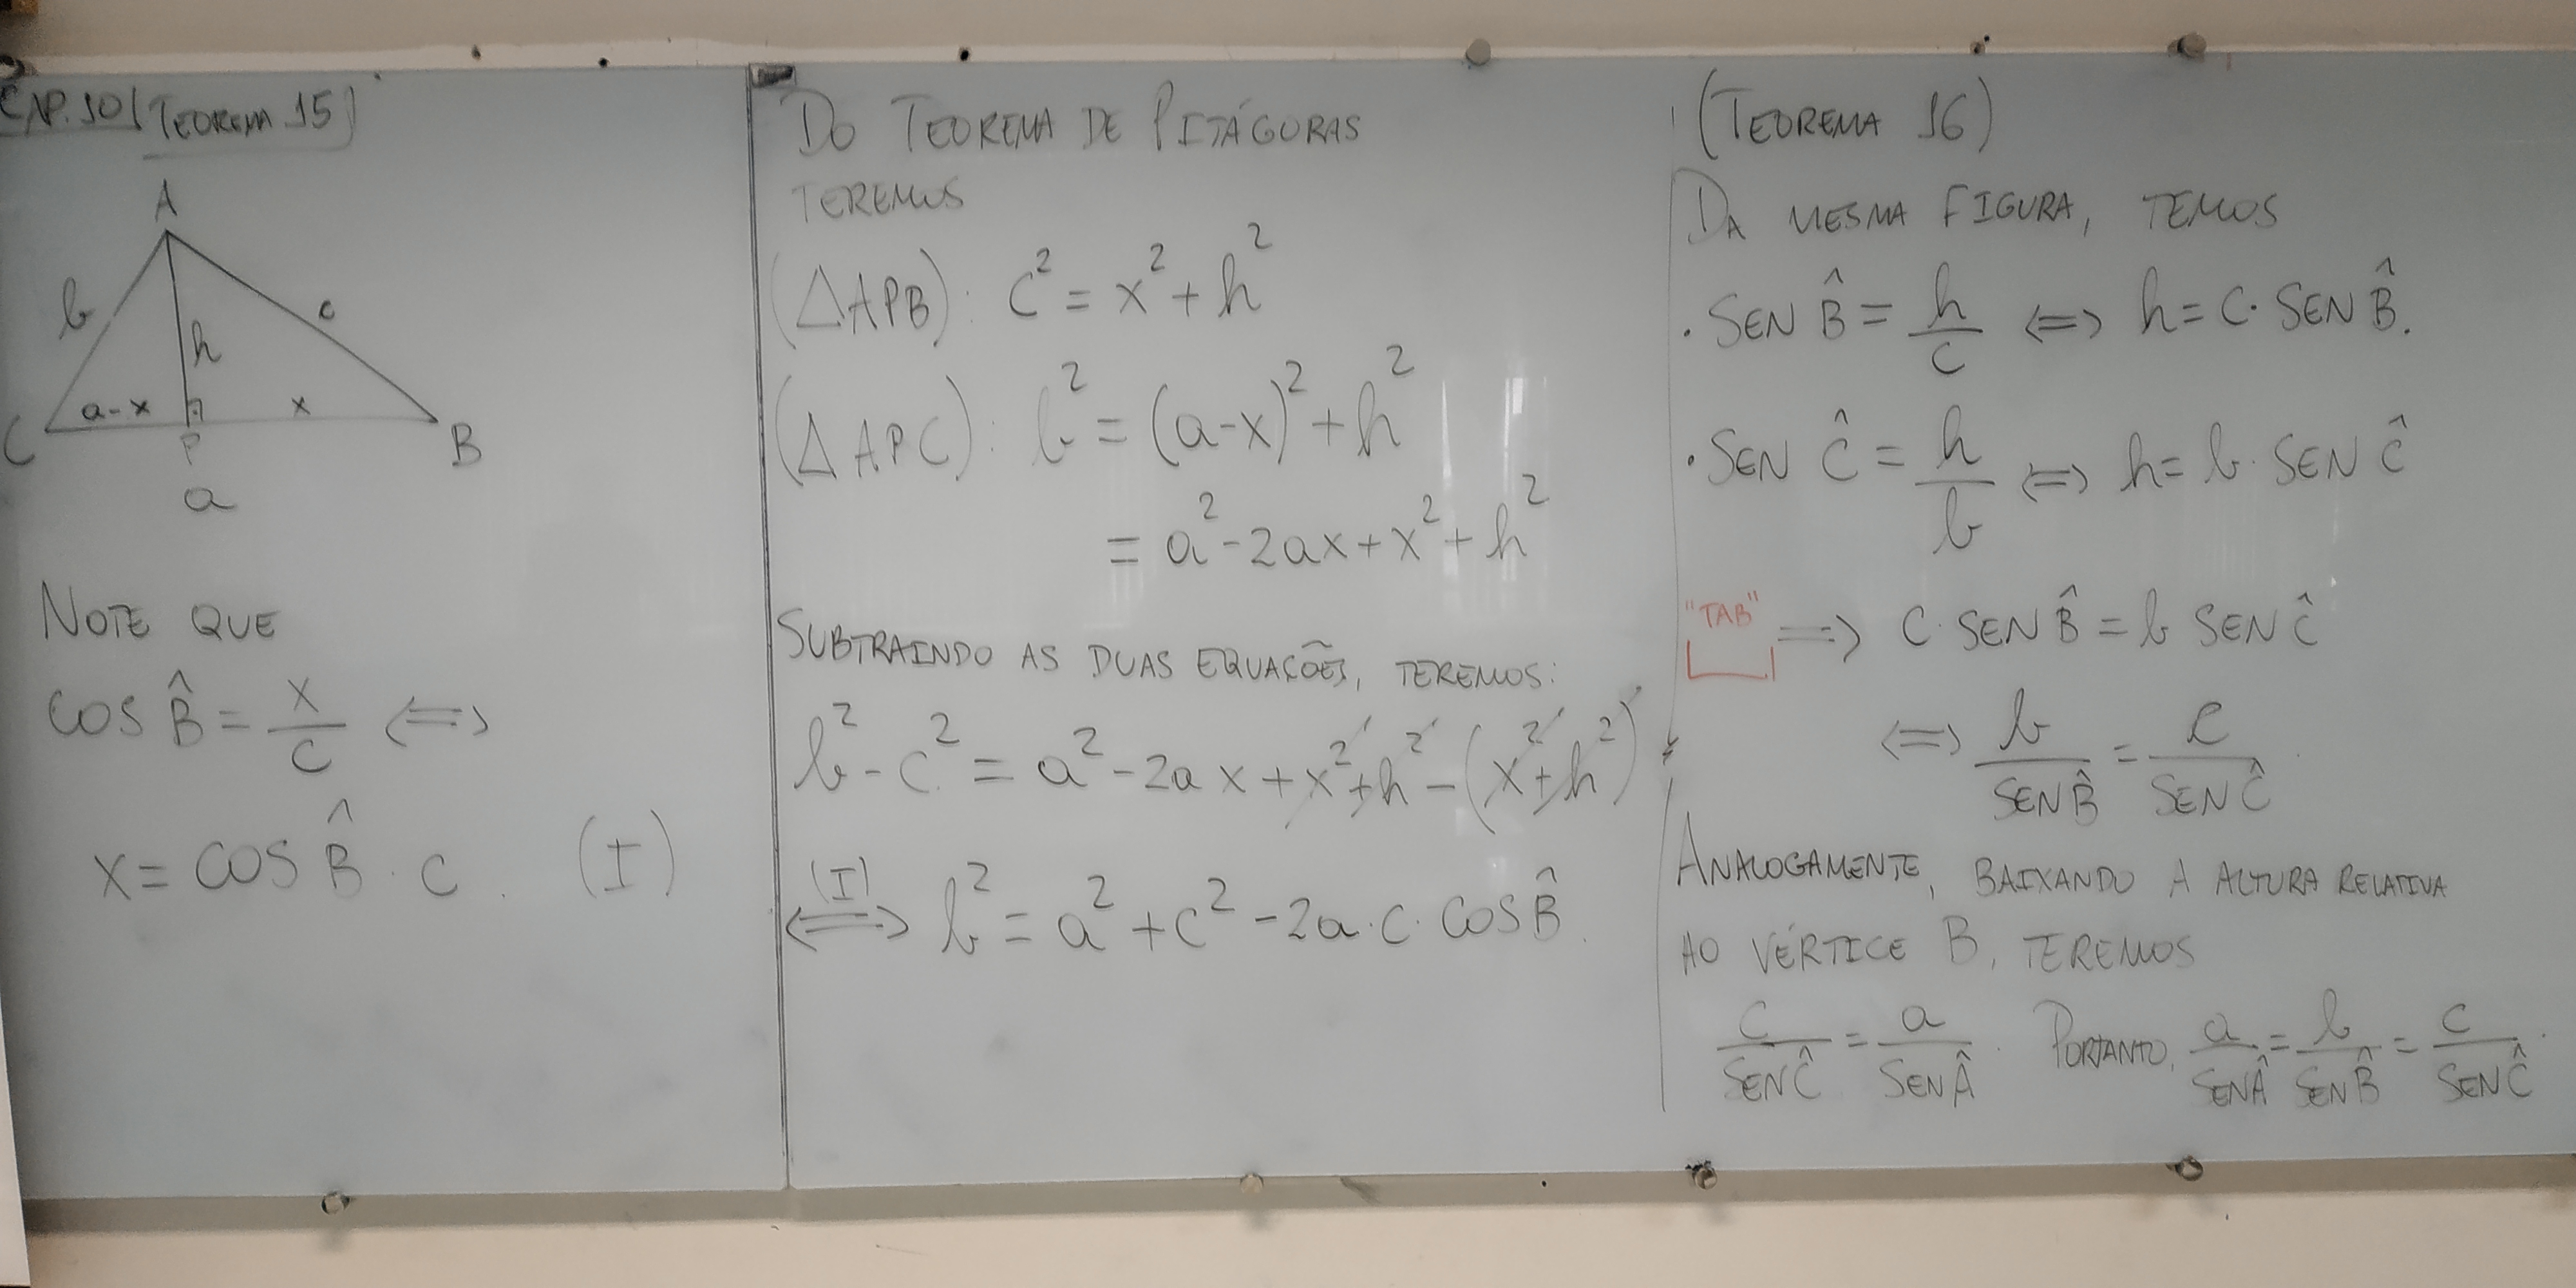 CAP. 10 (TEOREMA 15)
A
b
c
h
a-x
x
C
P
B
a
NOTE QUE
COS B̂ = x/c ⟺
x = COS B̂ · c. (I)
DO TEOREMA DE PITÁGORAS
TEREMOS
(△APB): c² = x² + h²
(△APC): b² = (a-x)² + h²
= a² - 2ax + x² + h²
SUBTRAINDO AS DUAS EQUAÇÕES, TEREMOS:
b² - c² = a² - 2ax + x² + h² - (x² + h²)
(I)
⟺ b² = a² + c² - 2a·c·COS B̂.
(TEOREMA 16)
DA MESMA FIGURA, TEMOS
· SEN B̂ = h/c ⟺ h = c· SEN B̂.
· SEN Ĉ = h/b ⟺ h = b· SEN Ĉ
"TAB" ⟹ c· SEN B̂ = b SEN Ĉ
⟺ b/SEN B̂ = c/SEN Ĉ.
ANALOGAMENTE, BAIXANDO A ALTURA RELATIVA
AO VÉRTICE B, TEREMOS
c/SEN Ĉ = a/SEN Â. PORTANTO, a/SEN Â = b/SEN B̂ = c/SEN Ĉ.